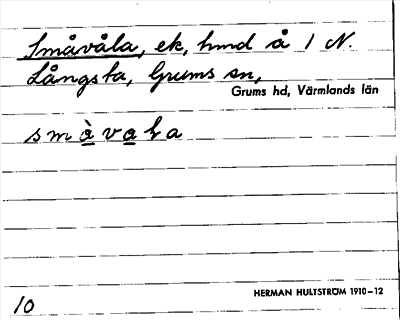 Småvåla, ek, hmd å 1 N.
Långsta, Grums sn,
Grums hd, Värmlands län
smàvała
HERMAN HULTSTRÖM 1910–12
10